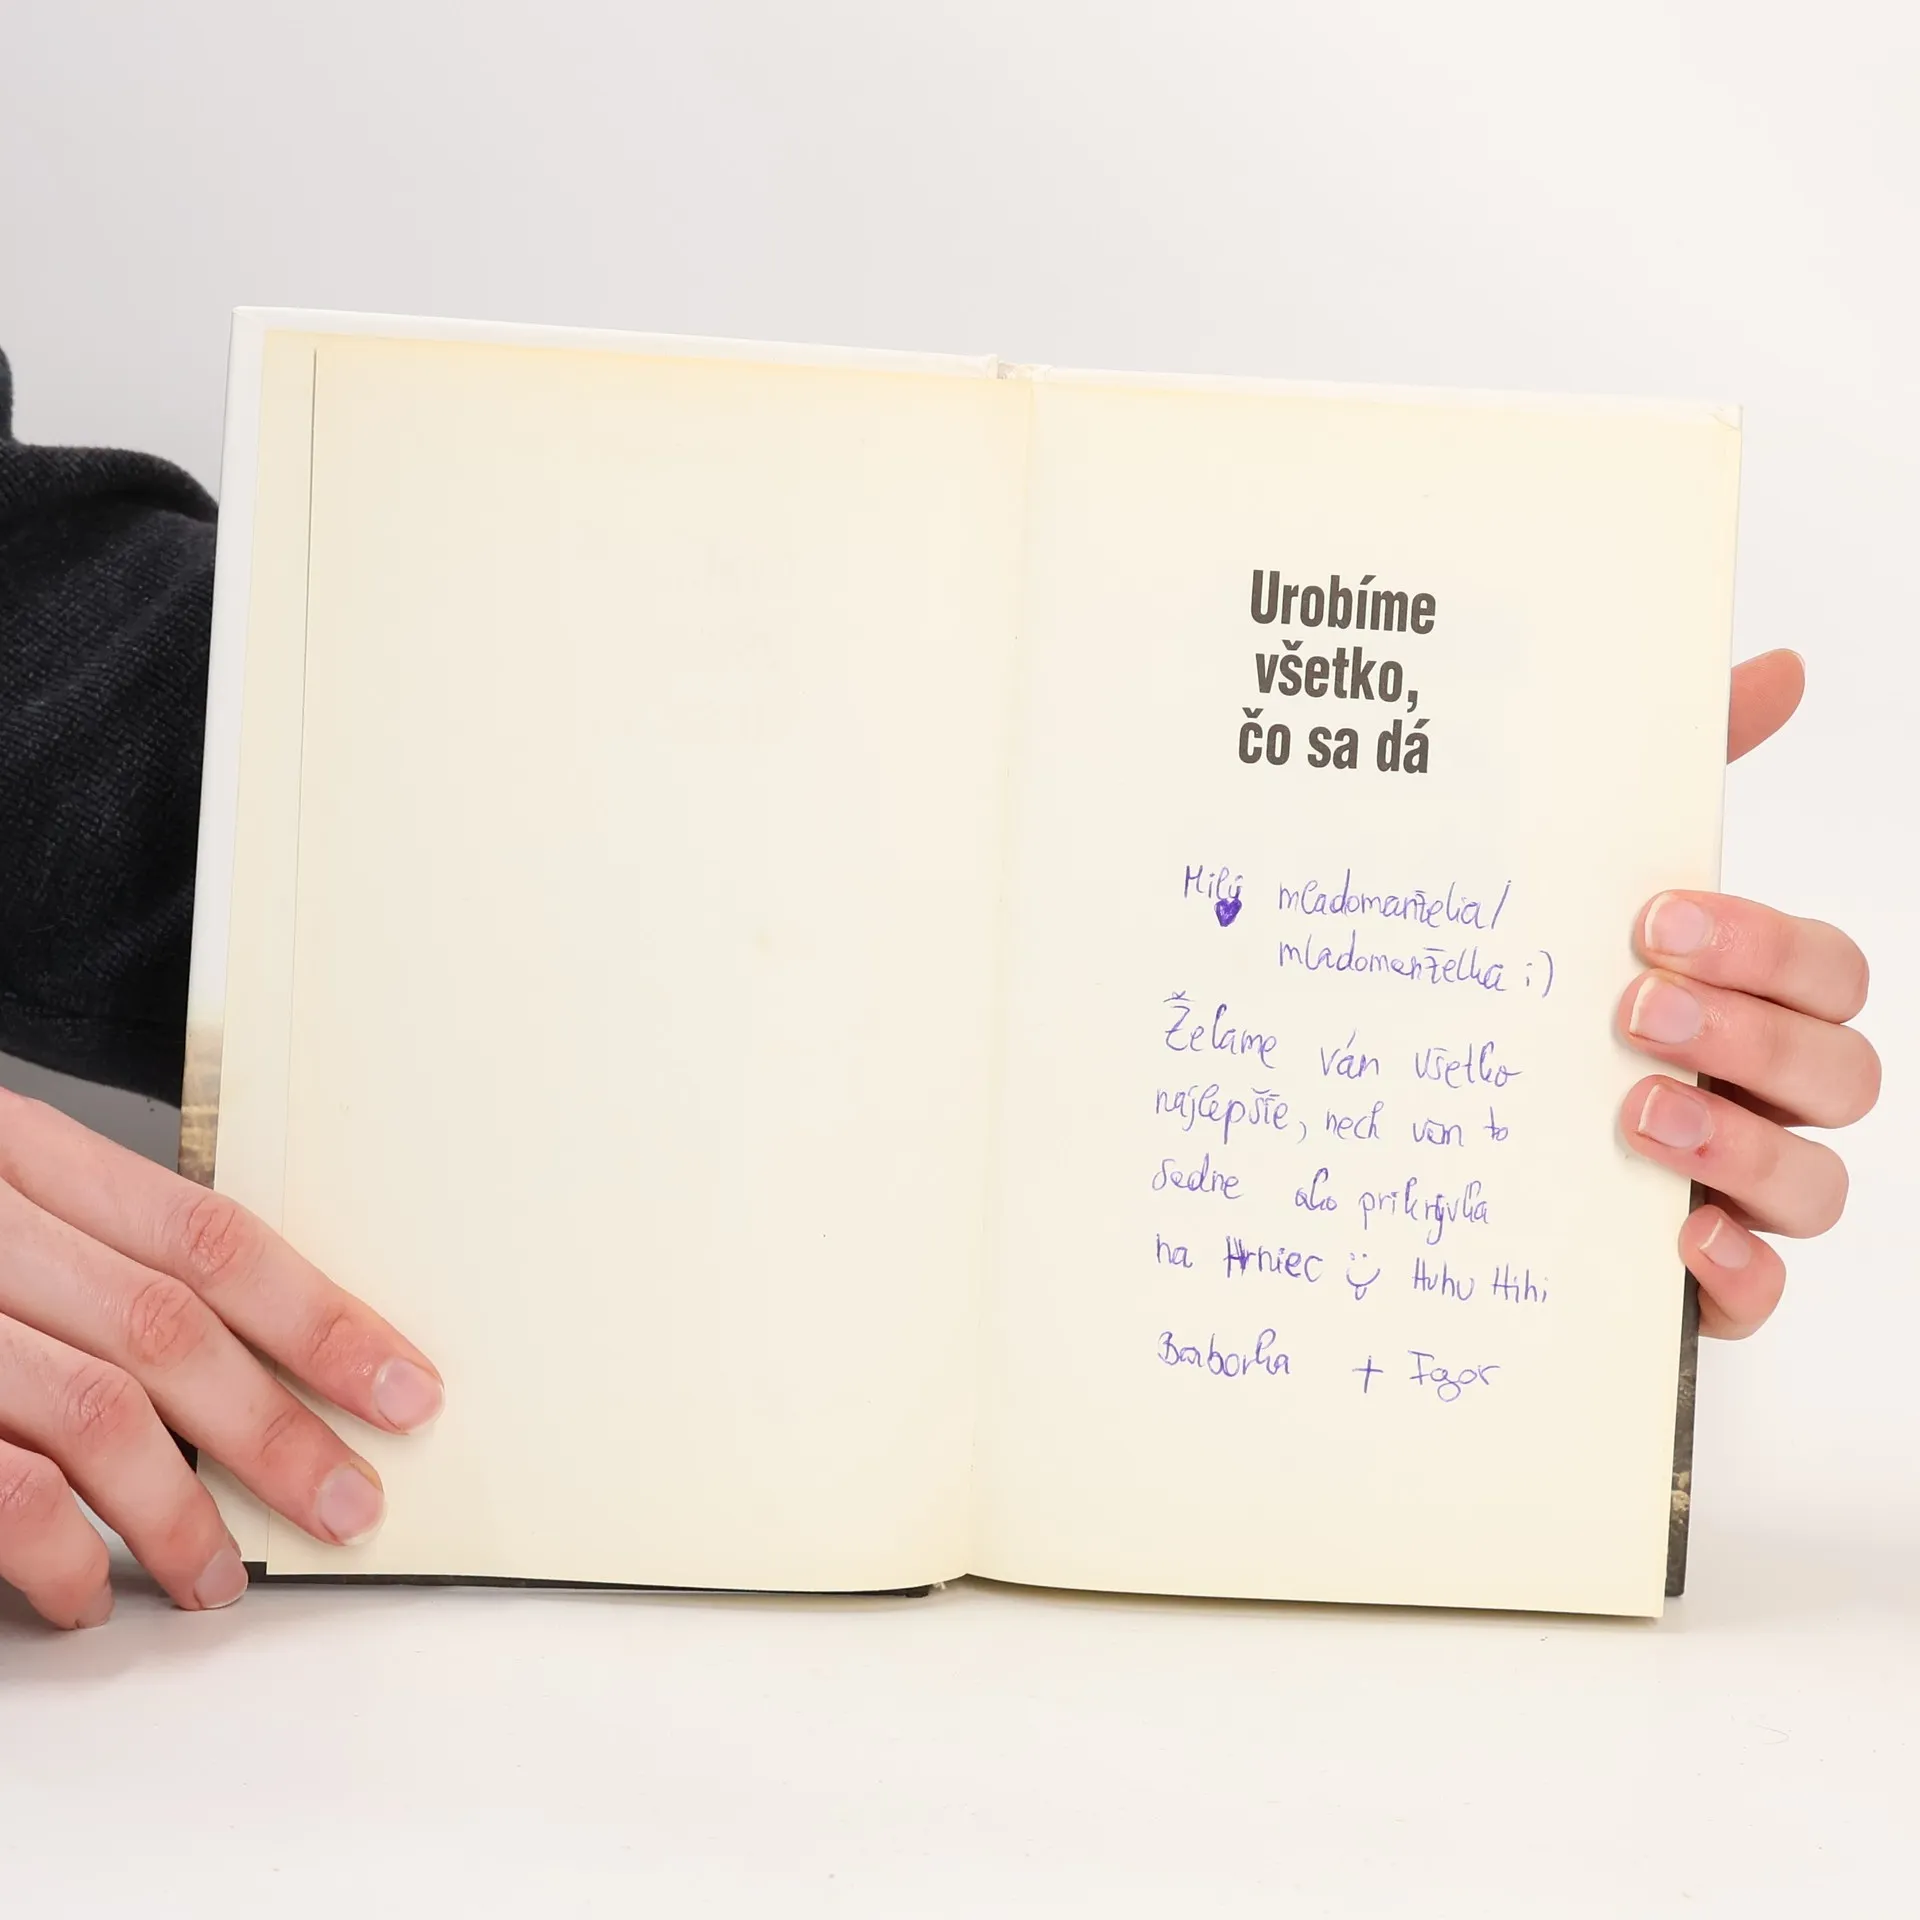 Urobíme
všetko,
čo sa dá
Milý mladomanželia/
mladomanželka ;)
Želáme vám všetko
najlepšie, nech vám to
sedne ako prikrývka
na Hrniec Huhu Hihi
Barborka + Igor